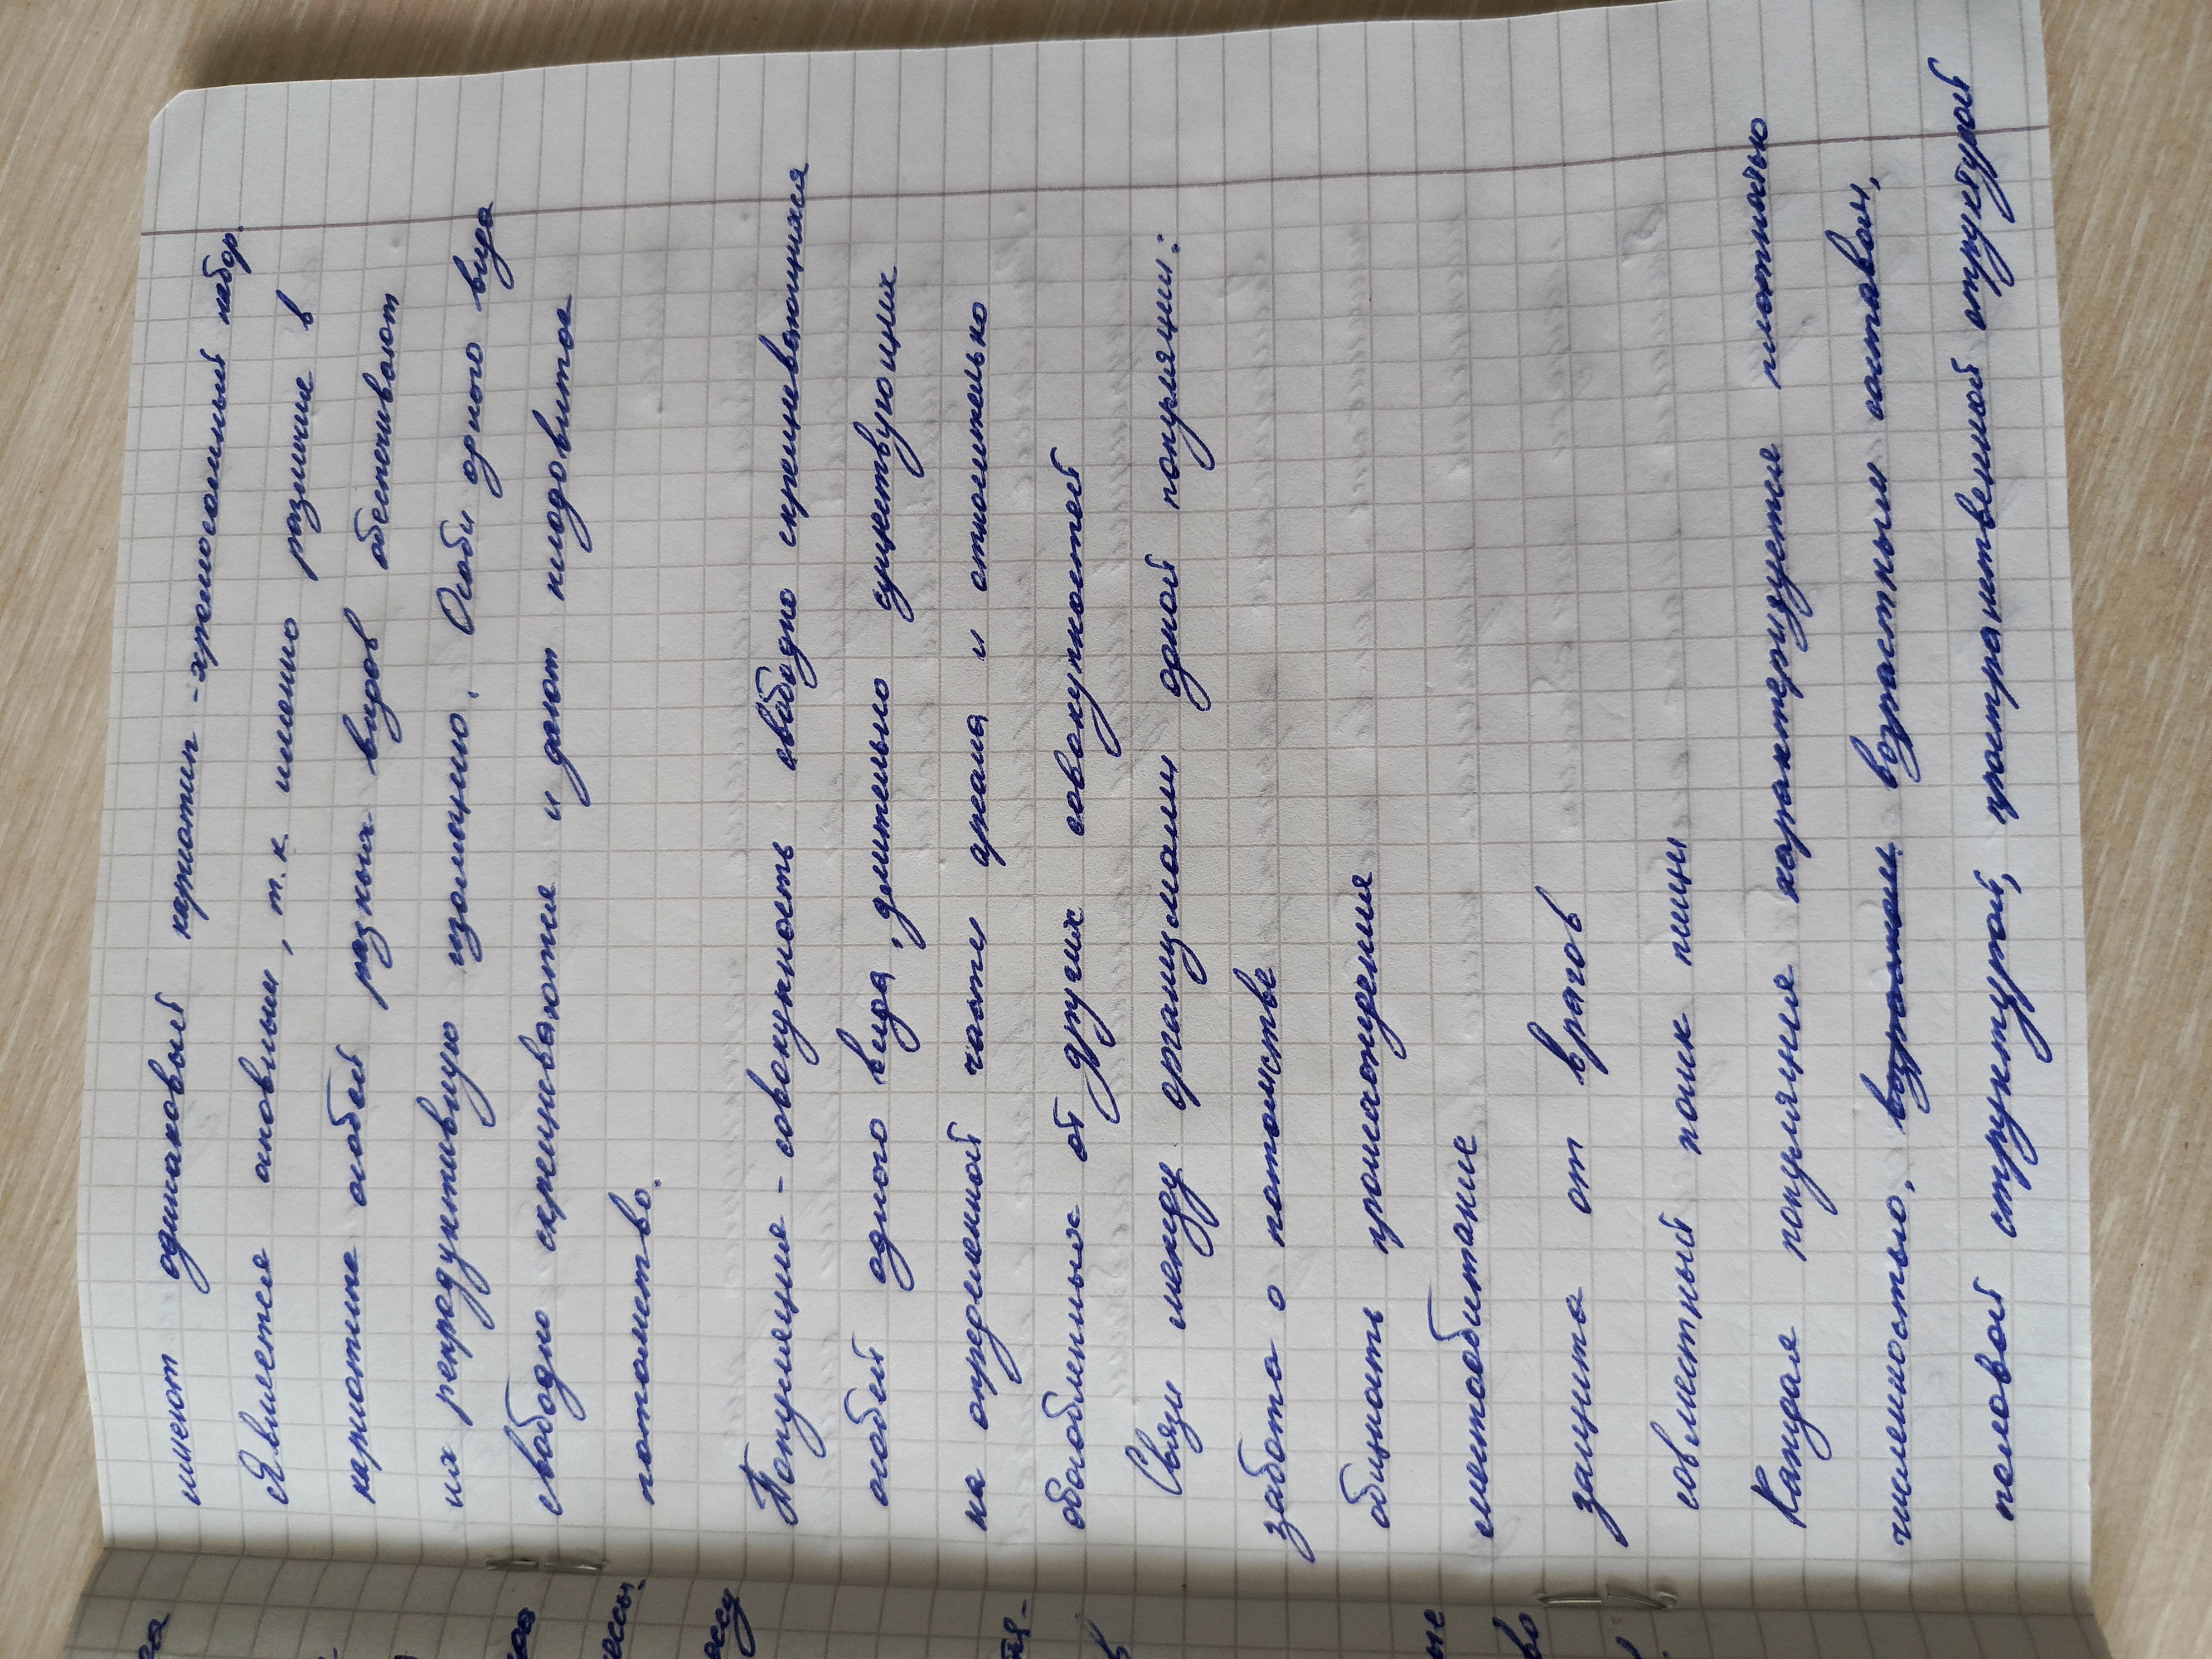 имеют одинаковый кариотип - хромосомный набор.
Является основным, т.к. именно различие в
кариотипе особей разных видов обеспечивают
их репродуктивную изоляцию. Особи одного вида
свободно скрещиваются и дают плодовитое
потомство.
Популяция - совокупность свободно скрещивающихся
особей одного вида, длительно существующих
на определенной части ареала и относительно
обособленных от других совокупностей
Связи между организмами одной популяции:
забота о потомстве
общность происхождения
местообитание
защита от врагов
совместный поиск пищи
Каждая популяция характеризуется плотностью
численностью, возрастным составом,
половой структурой, пространственной структурой